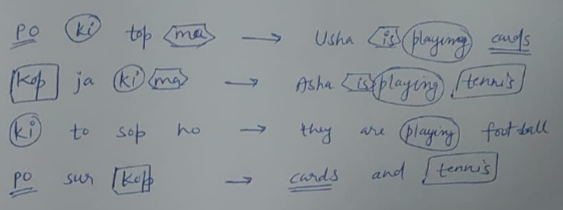 po ki top ma → Usha is playing cards
Kop ja ki ma → Asha is playing tennis
ki to sop ho → they are playing football
po sur Kop → cards and tennis